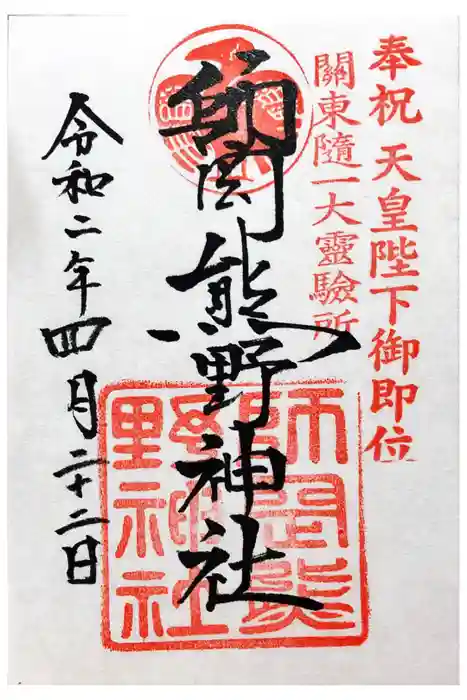 奉祝 天皇陛下御即位
關東隨一大靈驗所
師岡熊野神社
令和二年四月二十二日
師岡熊
野神社